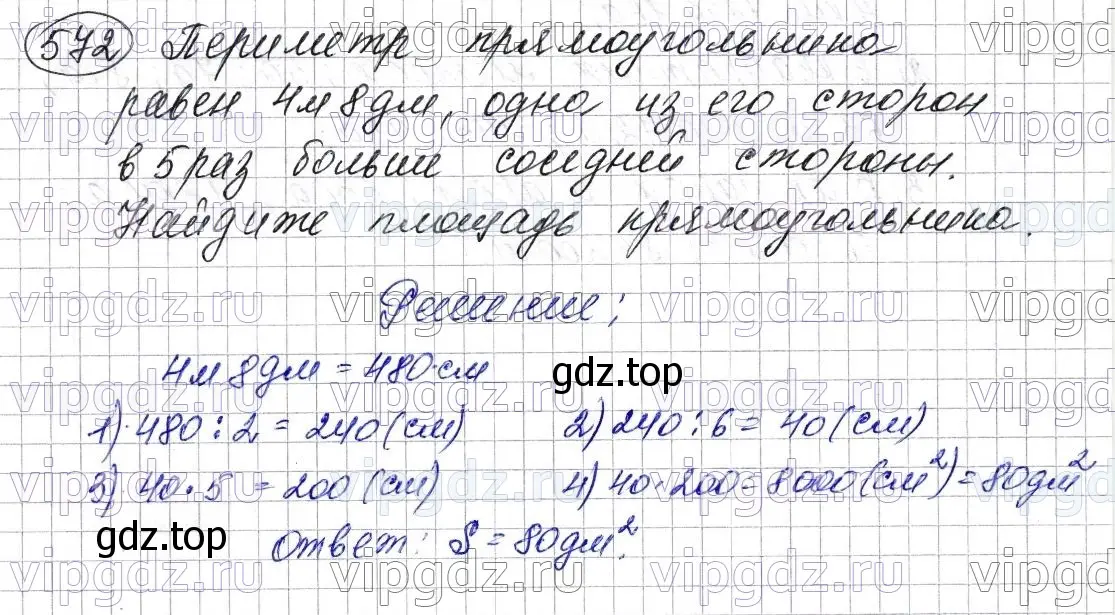 572 Периметр прямоугольника
равен 4м 8дм, одна из его сторон
в 5 раз больше соседней стороны.
Найдите площадь прямоугольника.
Решение;
4м 8дм = 480 см
gdz.top
1) 480 : 2 = 240 (см) 2) 240 : 6 = 40 (см)
3) 40 · 5 = 200 (см) 4) 40 · 200 = 8000 (см²) = 80дм²
gdz.top
Ответ: S = 80дм².
vipgdz.ru